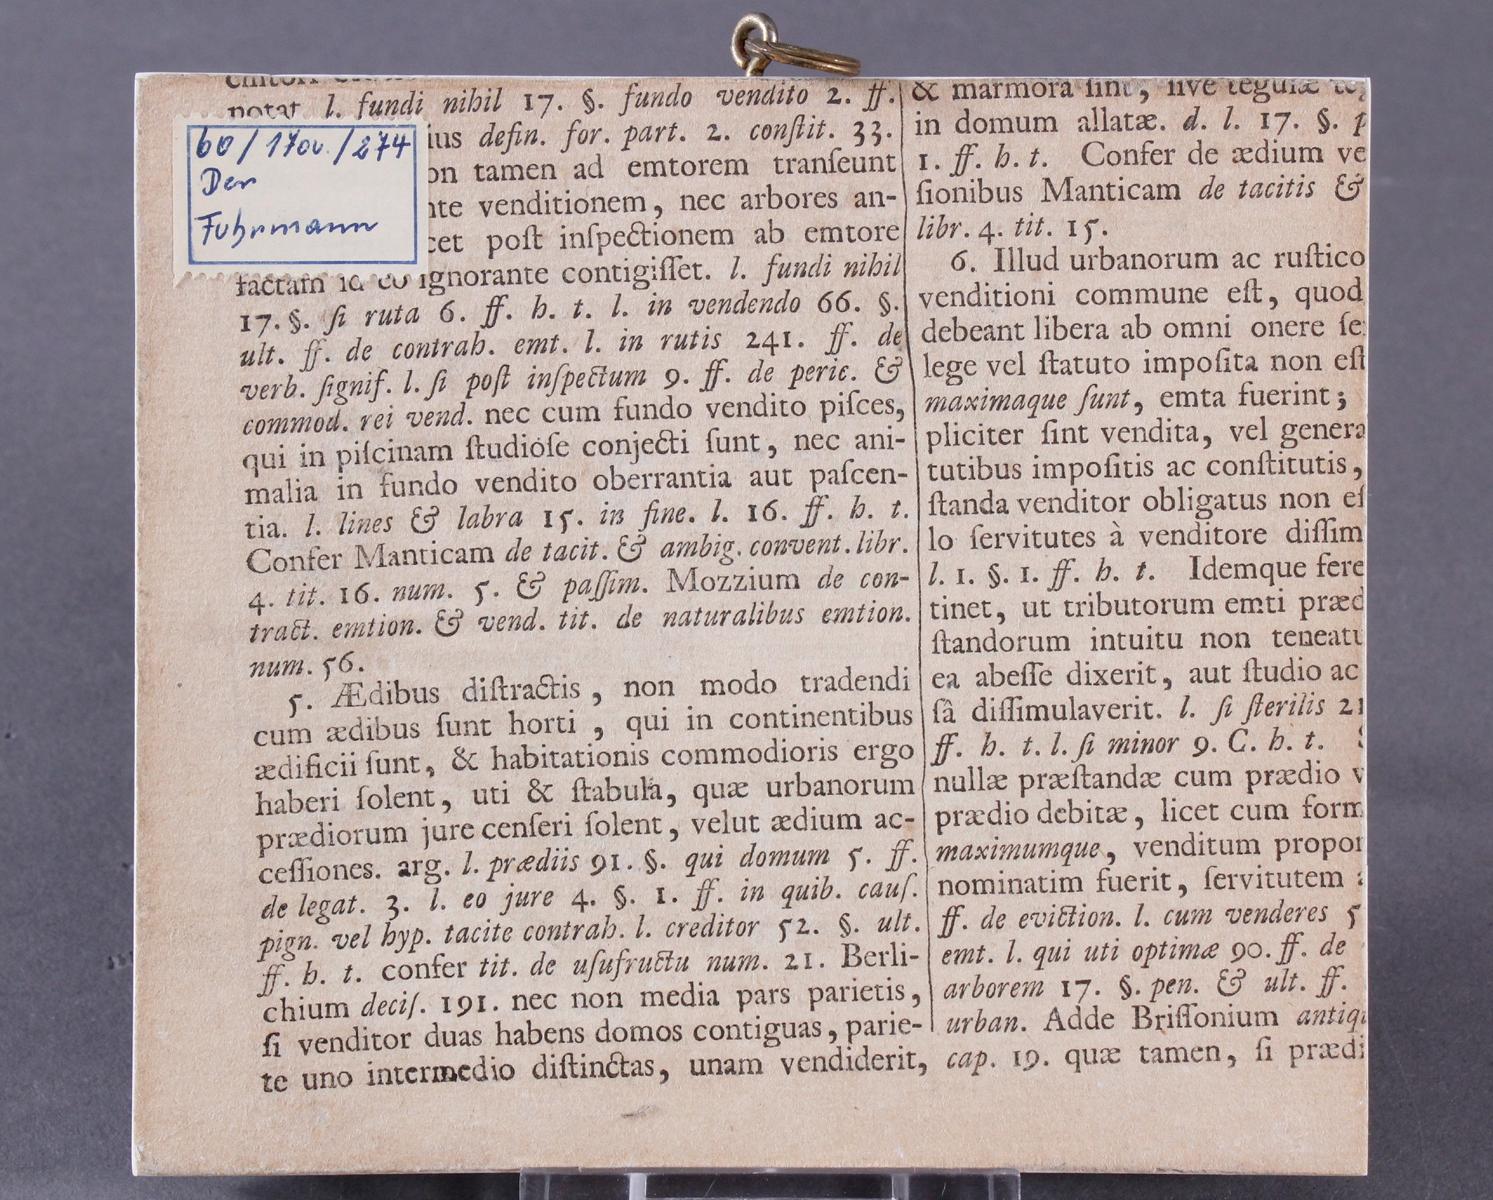 60/170v./274
Der
Fuhrmann
notat l. fundi nihil 17. §. fundo vendito 2. ff.
ius defin. for. part. 2. conſtit. 33.
on tamen ad emtorem tranſeunt
nte venditionem, nec arbores an-
cet poſt inſpectionem ab emtore
factam id eo ignorante contigiſſet. l. fundi nihil
17. §. ſi ruta 6. ff. h. t. l. in vendendo 66. §.
ult. ff. de contrah. emt. l. in rutis 241. ff. de
verb. ſignif. l. ſi poſt inſpectum 9. ff. de peric. &
commod. rei vend. nec cum fundo vendito piſces,
qui in piſcinam ſtudioſe conjecti ſunt, nec ani-
malia in fundo vendito oberrantia aut paſcen-
tia. l. lines & labra 15. in fine. l. 16. ff. h. t.
Confer Manticam de tacit. & ambig. convent. libr.
4. tit. 16. num. 5. & paſſim. Mozzium de con-
tract. emtion. & vend. tit. de naturalibus emtion.
num. 56.
5. Ædibus diſtractis, non modo tradendi
cum ædibus ſunt horti, qui in continentibus
ædificii ſunt, & habitationis commodioris ergo
haberi ſolent, uti & ſtabula, quæ urbanorum
prædiorum jure cenſeri ſolent, velut ædium ac-
ceſſiones. arg. l. prædiis 91. §. qui domum 5. ff.
de legat. 3. l. eo jure 4. §. 1. ff. in quib. cauſ.
pign. vel hyp. tacite contrah. l. creditor 52. §. ult.
ff. h. t. confer tit. de uſufructu num. 21. Berli-
chium deciſ. 191. nec non media pars parietis,
ſi venditor duas habens domos contiguas, parie-
te uno intermedio diſtinctas, unam vendiderit,
& marmora ſint, ſive tegulæ
in domum allatæ. d. l. 17. §. p
1. ff. h. t. Confer de ædium ve
ſionibus Manticam de tacitis &
libr. 4. tit. 15.
6. Illud urbanorum ac ruſtico
venditioni commune eſt, quod
debeant libera ab omni onere ſe
lege vel ſtatuto impoſita non eſt
maximaque ſunt, emta fuerint;
pliciter ſint vendita, vel genera
tutibus impoſitis ac conſtitutis,
ſtanda venditor obligatus non eſ
lo ſervitutes à venditore diſſim
l. 1. §. 1. ff. h. t. Idemque fere
tinet, ut tributorum emti præd
ſtandorum intuitu non teneatu
ea abeſſe dixerit, aut ſtudio ac
ſâ diſſimulaverit. l. ſi ſterilis 21
ff. h. t. l. ſi minor 9. C. h. t.
nullæ præſtandæ cum prædio v
prædio debitæ, licet cum form
maximumque, venditum propon
nominatim fuerit, ſervitutem
ff. de eviction. l. cum venderes 5
emt. l. qui uti optimæ 90. ff. de
arborem 17. §. pen. & ult. ff.
urban. Adde Briſſonium antiqu
cap. 19. quæ tamen, ſi prædi